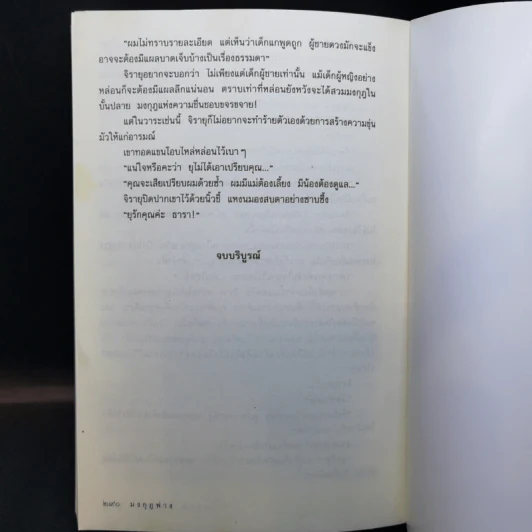 “ผมไม่ทราบรายละเอียด แต่เห็นว่าเด็กแกพูดถูก ผู้ชายดวงมักจะแข็ง
อาจจะต้องมีแผลบาดเจ็บบ้างเป็นเรื่องธรรมดา”
จิรายุอยากจะบอกว่า ไม่เพียงแต่เด็กผู้ชายเท่านั้น แม้เด็กผู้หญิงอย่าง
หล่อนก็จะต้องมีแผลลึกแน่นอน ตราบเท่าที่หล่อนยังหวังจะได้สวมมงกุฎใน
บั้นปลาย มงกุฎแห่งความชื่นชอบขจรขจาย!
แต่ในวาระเช่นนี้ จิรายุก็ไม่อยากจะทำร้ายตัวเองด้วยการสร้างความขุ่น
มัวให้แก่อารมณ์
เขาทอดแขนโอบไหล่หล่อนไว้เบาๆ
“แน่ใจหรือคะว่า ยุไม่ได้เอาเปรียบคุณ...”
“คุณจะเสียเปรียบผมด้วยซ้ำ ผมมีแม่ต้องเลี้ยง มีน้องต้องดูแล...”
จิรายุปิดปากเขาไว้ด้วยนิ้วชี้ แหงนมองสบตาอย่างซาบซึ้ง
“ยุรักคุณค่ะ ธารา!”
จบบริบูรณ์
มงกุฎฟาง